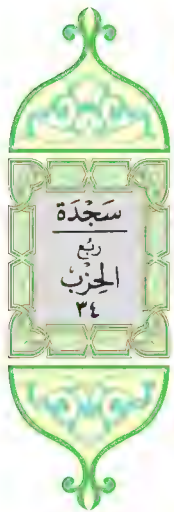 سَجْدَة
رُبُع
الحِزْب
٣٤